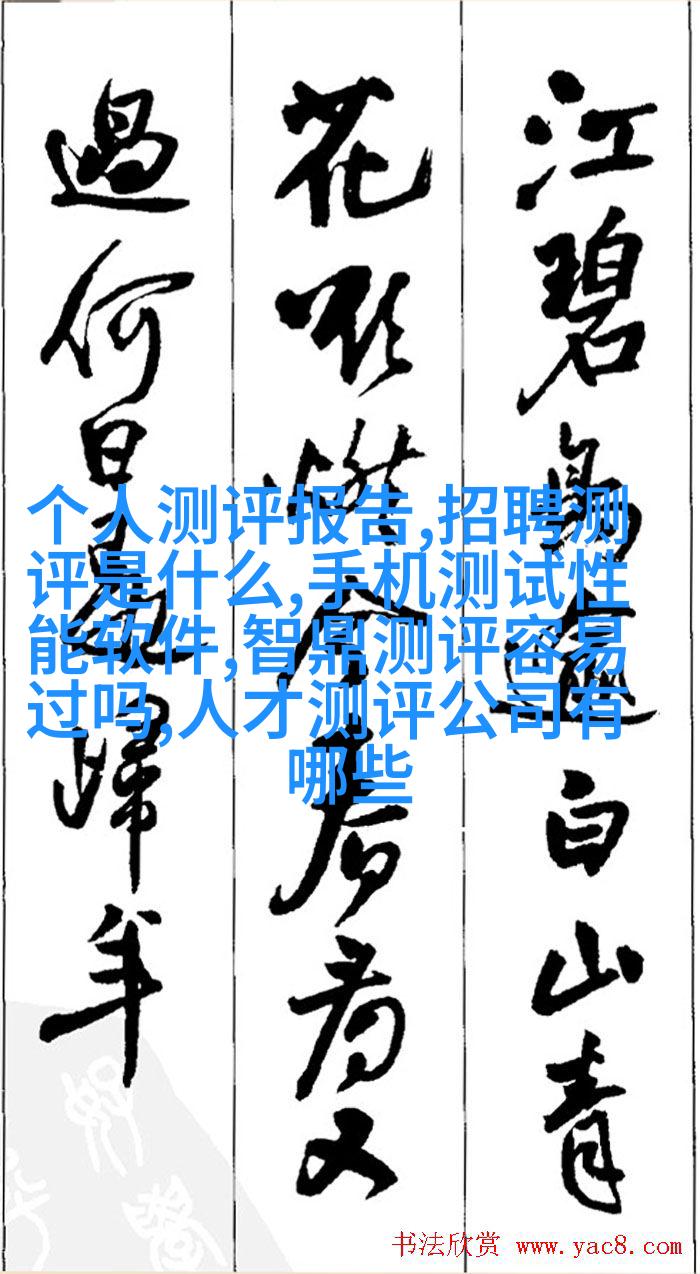 江碧鳥逾白山青
花欲燃今春看又
過何日是歸年
个人测评报告,招聘测
评是什么,手机测试性
能软件,智鼎测评容易
过吗,人才测评公司有
哪些
书法欣赏 www.yac8.com